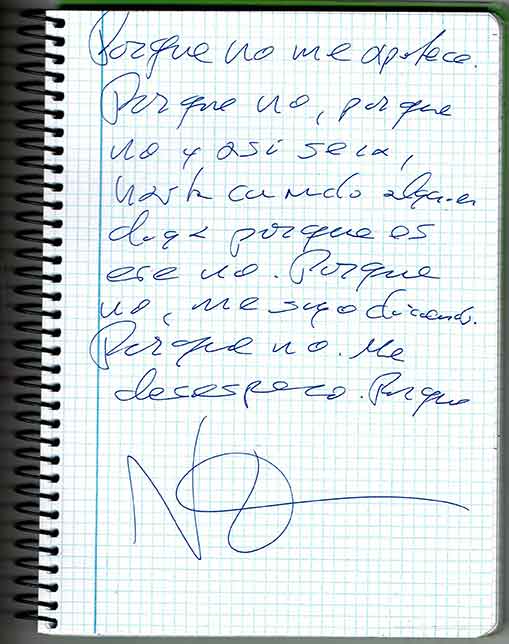 Porque no me apetece.
Porque no, porque
no y así será,
hasta cuando alguien
diga porque es
ese no. Porque
no, me sigo diciendo.
Porque no. Me
desespero. Porque
No